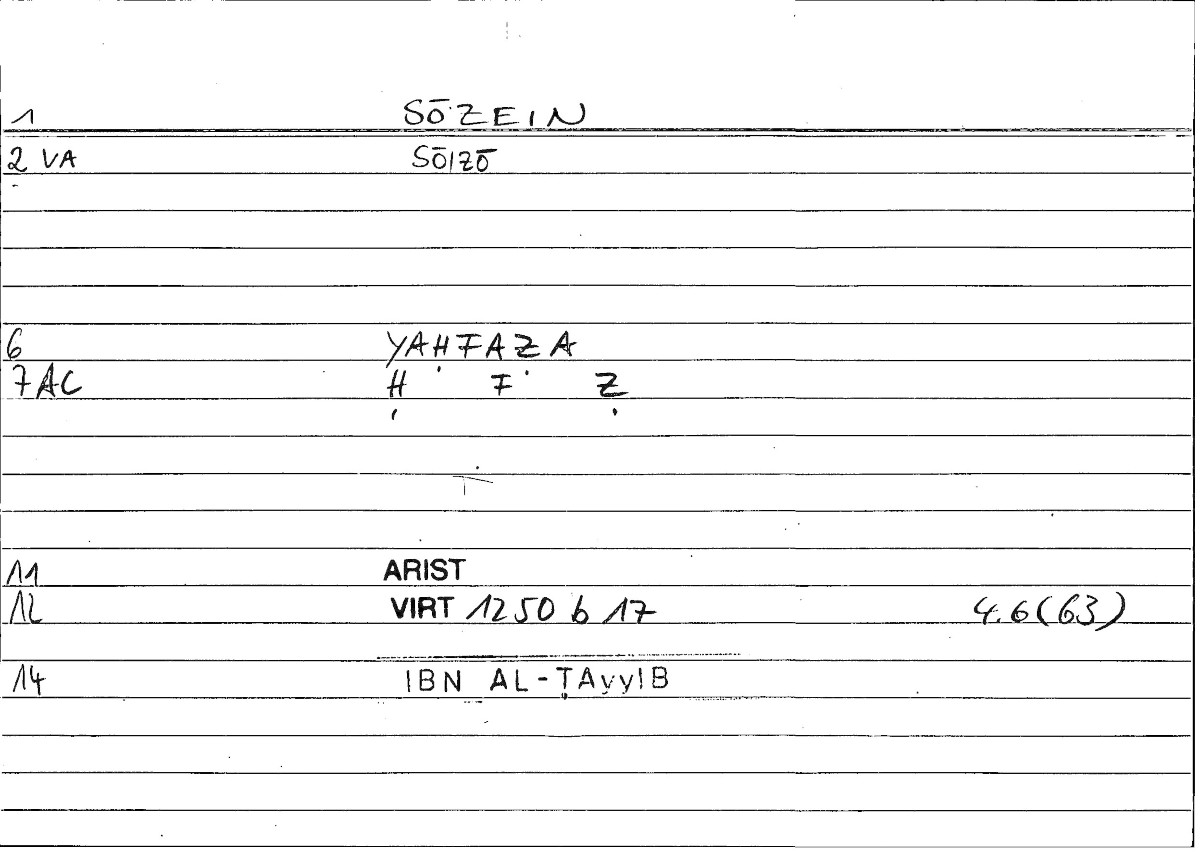 1 SŌZEIN
2 VA SŌIZŌ
6 YAḤFAẒA
7AC Ḥ F Ẓ
11 ARIST
12 VIRT 1250 b 17 4.6(63)
14 IBN AL-ṬAyyIB